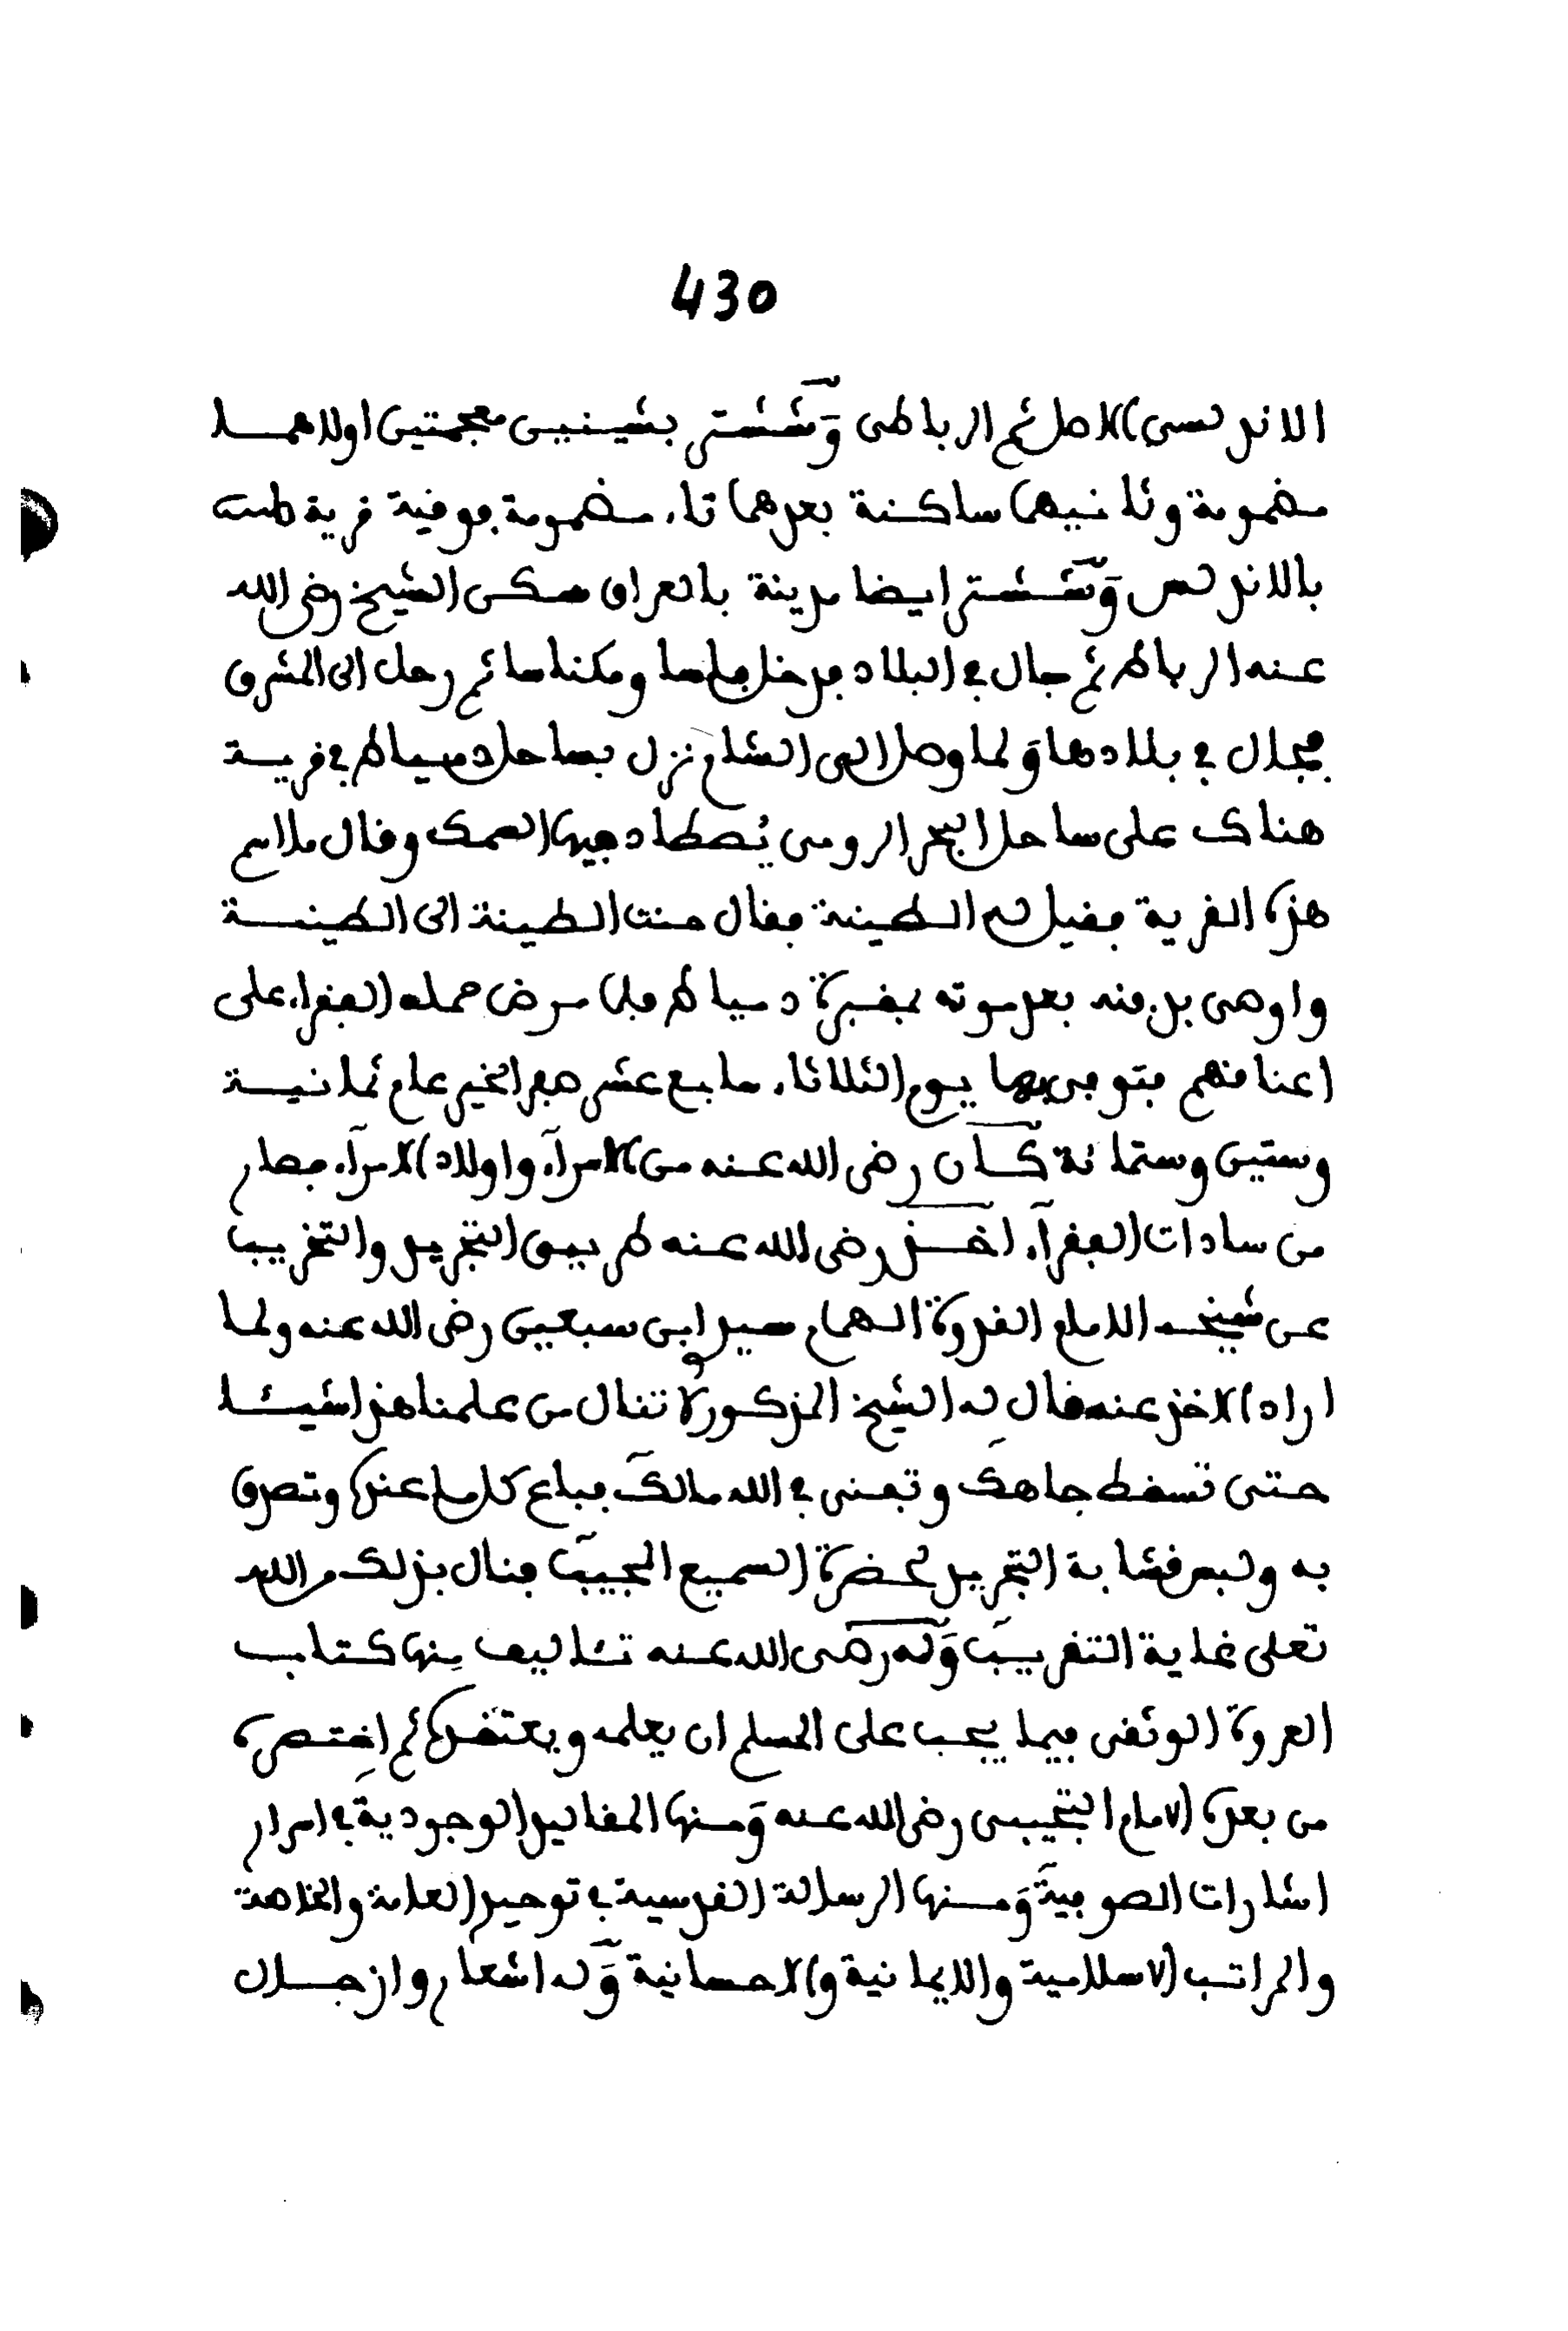 430
الاندلسي الاصل ثم الرباطي وششتر بشينين معجمتين اولاهما
مضمومة وثانيهما ساكنة بعدهما تاء مضمومة فوقية قرية
بالاندلس وششتر ايضا مدينة بالعراق سكن الشيخ رضي الله
عنه الرباط ثم جال في البلاد فدخل فاسا ومكناسا ثم رحل الى المشرق
فجال في بلادها ولما وصل الى الشام نزل بساحل دمياط في قرية
هناك على ساحل البحر الرومي يُصطاد فيها السمك وقال ما اسم
هذه القرية فقيل له الطينة فقال حنت الطينة الى الطينة
واوصى بدفنه بعد موته بمقبرة دمياط فلما مرض حمله الفقراء على
اعناقهم فتوفي بها يوم الثلاثاء سابع عشر صفر الخير عام ثمانية
وستين وستمائة كان رضي الله عنه من الامرآء واولاد الامرآء فصار
من سادات الفقرآء اخذ رضي الله عنه طريق التجريد والتخريب
عن شيخه الامام القدوة الهمام سيد ابن سبعين رضي الله عنه ولما
اراد الاخذ عنه قال له الشيخ المذكور لا تنال من علمنا هذا شيئا
حتى تسقط جاهك وتفنى في الله مالك فباع كل ما عنده وتصدق
به ولبس قشابة التجريد لحضرة السميع المجيب فنال بذلك من الله
تعلى غاية التقريب وله رضي الله عنه تئاليف منها كتاب
العروة الوثقى فيما يجب على المسلم ان يعلمه ويعتقده ثم اختصره
من بعده الامام التجيبي رضي الله عنه ومنها المقاليد الوجودية في اسرار
اشارات الصوفية ومنها الرسالة القدسية في توحيد العامة والخاصة
والمراتب الاسلامية والايمانية والاحسانية وله اشعار وازجال